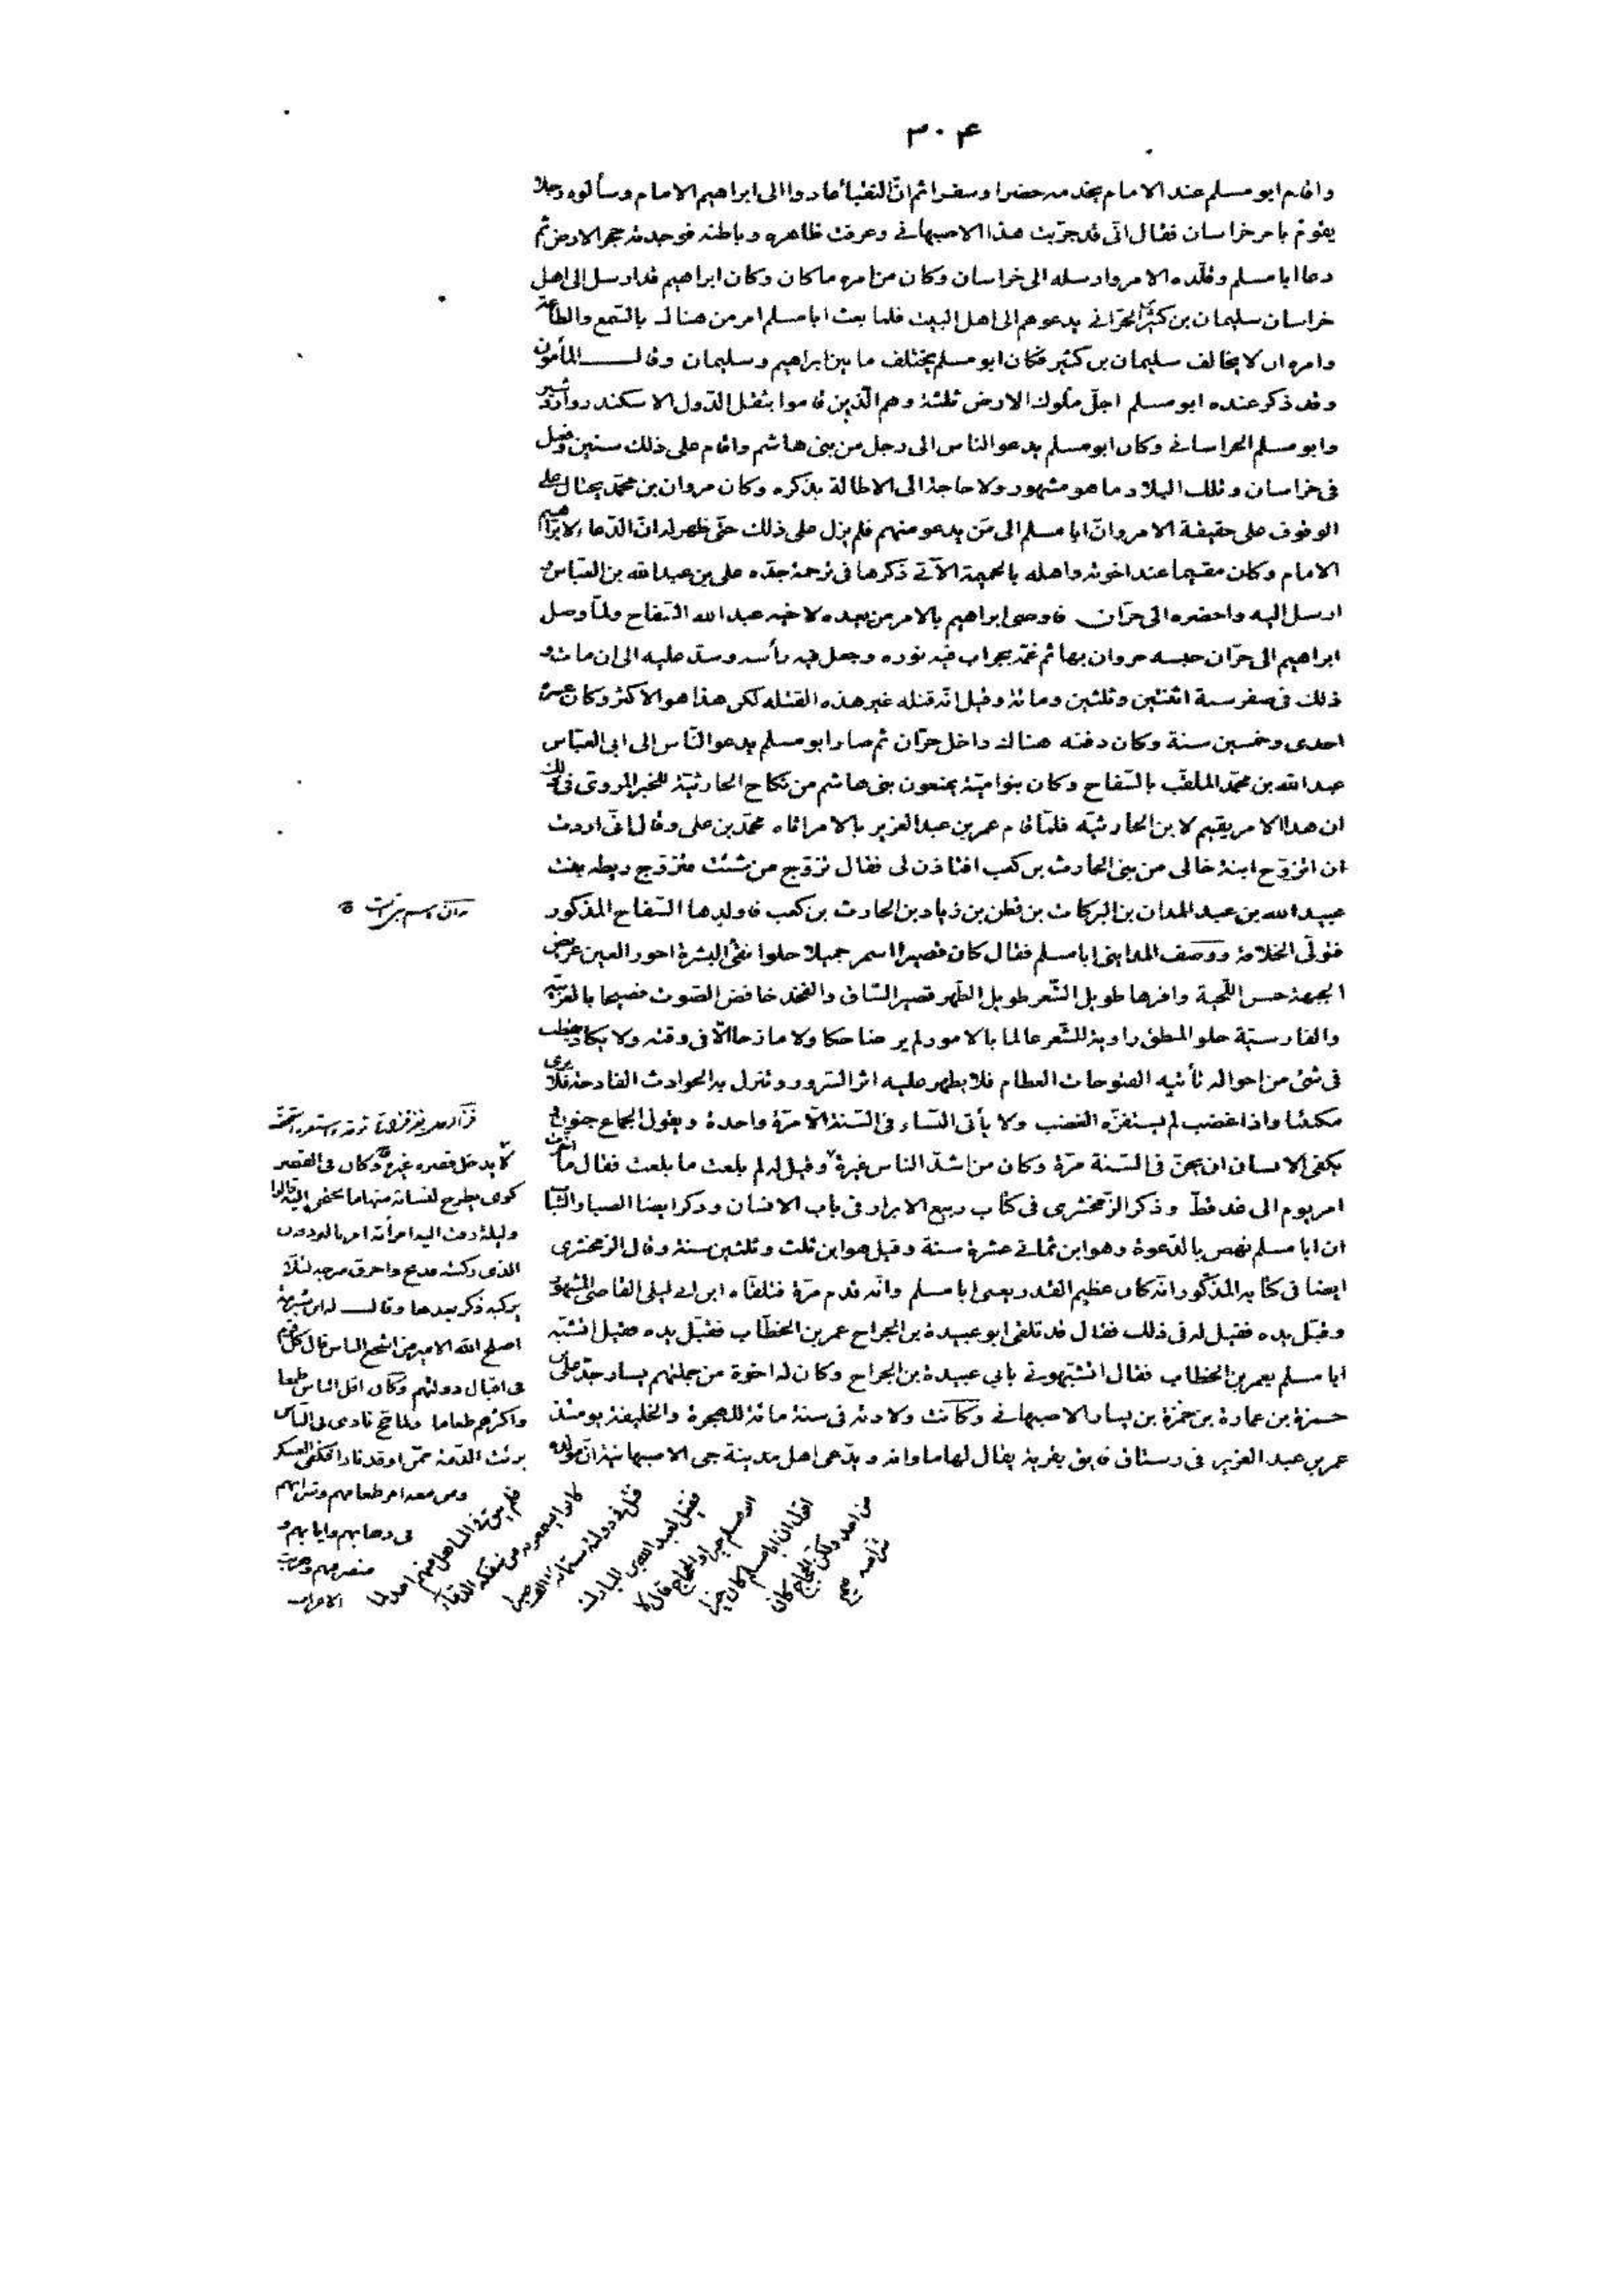 ٣٠۴
واقام ابو مسلم عند الامام يخدمه حضرا وسفرا ثم انّ النقباء عادوا الى ابراهيم الامام وسألوه رجلا
يقوم بامر خراسان فقال انى قد جرّبت هذا الاصبهانى وعرفت ظاهره وباطنه فوجدته حجر الارض ثم
دعا ابا مسلم وقلّده الامر وارسله الى خراسان وكان من امره ما كان وكان ابراهيم قد ارسل الى اهل
خراسان سليمان بن كثير الحرّانى يدعوهم الى اهل البيت فلما بعث ابا مسلم امر من هناك بالسّمع والطاعة
وامره ان لا يخالف سليمان بن كثير فكان ابو مسلم يختلف ما بين ابراهيم وسليمان وقال المأمون
وقد ذكر عنده ابو مسلم اجلّ ملوك الارض ثلثة وهم الّذين قاموا بثقل الدّول الاسكندر واردشير
وابو مسلم الخراسانى وكان ابو مسلم يدعو الناس الى رجل من بنى هاشم واقام على ذلك سنين وفعل
فى خراسان وتلك البلاد ما هو مشهور ولا حاجة الى الاطالة بذكره وكان مروان بن محمّد يحتال على
الوقوف على حقيقة الامر وانّ ابا مسلم الى مَن يدعو منهم فلم يزل على ذلك حتّى ظهر له انّ الدّعاء لابراهيم
الامام وكان مقيما عند اخوته واهله بالحميمة الآتى ذكرها فى ترجمة جدّه على بن عبدالله بن العبّاس
ارسل اليه واحضره الى حرّان فاوصى ابراهيم بالامر من بعده لاخيه عبدالله السّفاح ولمّا وصل
ابراهيم الى حرّان حبسه مروان بها ثم غمّه بجراب فيه نوره وجعل فيه رأسه وسدّ عليه الى ان مات و
ذلك فى صفر سنة اثنتين وثلثين ومائة وقيل انّه قتله غير هذه القتله لكن هذا هو الاكثر وكان عمره
احدى وخمسين سنة وكان دفنه هناك داخل حرّان ثم صار ابو مسلم يدعو النّاس الى ابى العبّاس
عبدالله بن محمّد الملقّب بالسّفاح وكان بنو اميّة يمنعون بنى هاشم من نكاح الحارثيّة للخبر المروى فى ذلك
ان هذا الامر يقيم لابن الحارثيّه فلمّا قام عمر بن عبد العزيز بالامر اتاه محمّد بن على وقال انّى اردت
ان اتزوّج ابنة خالى من بنى الحارث بن كعب افتاذن لى فقال تزوّج من شئت فتزوّج ريطه بنت
عبيد الله بن عبد المدان بن البركات بن قطن بن زياد بن الحارث بن كعب فاولدها السّفاح المذكور
فتولّى الخلافة ووصف المداينى ابا مسلم فقال كان قصيرا اسمر جميلا حلوا نقىّ البشرة احور العين عريض
الجبهة حسن اللّحية وافرها طويل الشّعر طويل الظّهر قصير السّاق والفخذ خافض الصّوت فصيحا بالعربيّة
والفارسيّة حلو المنطق راوية للشّعر عالما بالامور لم ير ضاحكا ولا مازحا الّا فى وقته ولا يكاد يقطب
فى شئ من احواله تأتيه الفتوحات العظام فلا يظهر عليه اثر السّرور وتنزل به الحوادث الفادحة فلا يرى
مكتئبا واذا غضب لم يستفزّه الغضب ولا يأتى النّساء فى السّنة الّا مرّة واحدة ويقول الجماع جنون و
يكفى الانسان ان يجنّ فى السّنة مرّة وكان من اشدّ الناس غيرة وقيل له لم بلغت ما بلغت فقال ما اخّرت
امر يوم الى غد قطّ وذكر الزّمخشرى فى كتاب ربيع الابرار فى باب الاسنان وذكر ايضا الصبا والشّباب
ان ابا مسلم نهض بالدّعوة وهو ابن ثمانى عشرة سنة وقيل هو ابن ثلث وثلثين سنة وقال الزّمخشرى
ايضا فى كتابه المذكور انّه كان عظيم القدر يعنى ابا مسلم وانّه قدم مرّة فتلقّاه ابن ابى ليلى القاضى المشهور
وقبّل يده فقيل له فى ذلك فقال قد تلقى ابو عبيدة بن الجراح عمر بن الخطّاب فقبّل يده فقيل اتشبّه
ابا مسلم بعمر بن الخطاب فقال اتشبّهونى بابى عبيدة بن الجراح وكان له اخوة من جملتهم يسار جدّ على بن
حمزة بن عمارة بن حمزة بن يسار الاصبهانى وكانت ولادته فى سنة مائة للهجرة والخليفة يومئذ
عمر بن عبد العزيز فى رستاق فايق بقرية يقال لها ماوانه ويدّعى اهل مدينة جى الاصبهانية انّ مولده
لا يدخل قصره غيره وكان فى القصر
كوى يطرح لنسائه منها ما يحتجن اليه قالوا
وليلة زفت اليه امرأته امر بالبرذون
الذى ركبته فذبح واحرق سرجه لئلّا
يركبه ذكر بعدها وقال له ابن شبرمة
اصلح الله الامير من اشجع الناس قال كلّ قوم
فى اقبال دولتهم وكان اقل الناس طمعا
واكثرهم طعاما ولما حج نادى فى النّاس
برئت الذمّة ممّن اوقد نارا فكفى العسكر
ومن معه امر طعامهم وشرابهم
فى ذهابهم وايابهم و
منصرفهم وهربت
الاعراب
فلم يبق فى المناهل منهم احد لما
كانوا يسمعونه من سفكه الدماء
قتل فى دولته ستمائة الف صبرا
فقيل لعبد الله بن المبارك
ابو مسلم خير او الحجاج قال لا
اقول ان ابا مسلم كان خيرا
من احد ولكن الحجاج كان
شرا منه صح